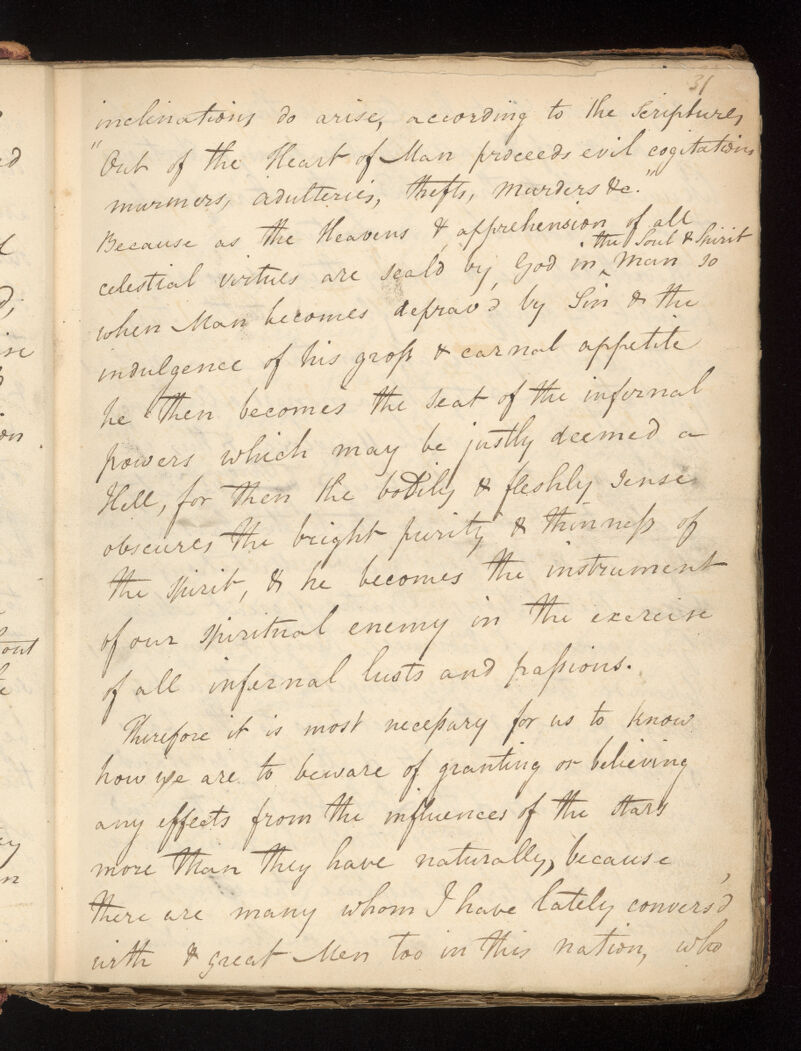 31
inclinations do arise, according to the Scriptures,
"Out of the Heart of Man proceeds evil cogitations
murmers, adulteries, thefts, murders &c."
Because as the Heavens & apprehension of all
the Soul & Spirit
celestial virtues are seald by God in ^ Man so
when Man becomes deprav'd by Sin & the
indulgence of his groſs & carnal appetite
he then becomes the seat of the infernal
powers which may be justly deemed a
Hell, for then the bodily & fleshly sense
obscures the bright purity & thinneſs of
the spirit, & he becomes the instrument
of our spiritual enemy in the exercise
of all infernal lusts and paſsions.
Therefore it is most neceſsary for us to know
how we are to beware of granting or believing
any effects from the influences of the stars
more than they have naturally, because
there are many whom I have lately convers'd
with & great Men too in this nation, who